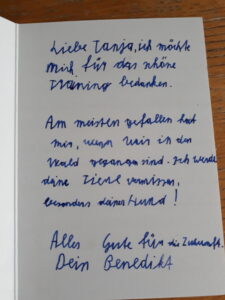 Liebe Tanja, ich möchte
mich für das schöne
Training bedanken.
Am meisten gefallen hat
mir, wenn wir in den
Wald gegangen sind. Ich werde
deine Tiere vermissen,
besonders deinen Hund!
Alles Gute für die Zukunft.
Dein Benedikt